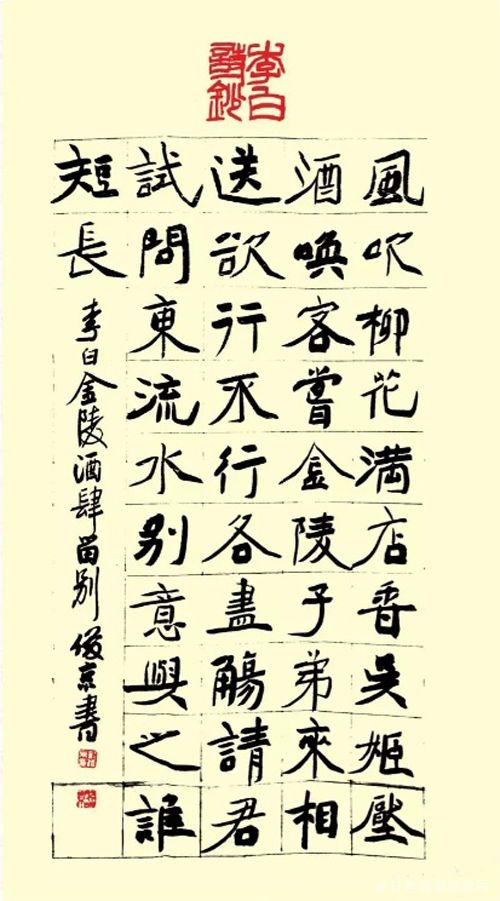 李白
詩鈔
風吹柳花満店香吳姬壓
酒喚客嘗金陵子弟來相
送欲行不行各盡觴請君
試問東流水別意與之誰
短長
李白金陵酒肆留別 俊京書